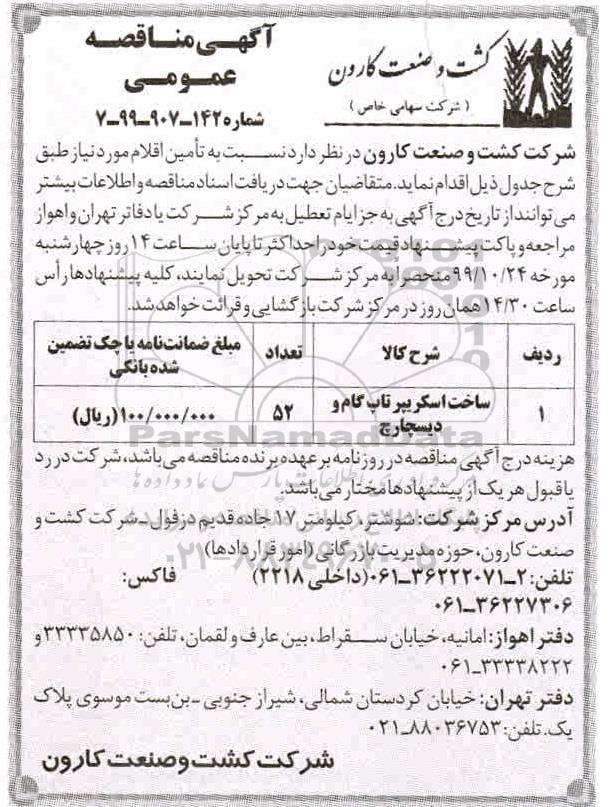 آگهـی مناقصه
عمـومـی
شماره ۱۴۲ـ۹۰۷ـ۹۹ـ۷
کشت و صنعت کارون
( شرکت سهامی خاص )
شرکت کشت و صنعت کارون در نظر دارد نسبت به تأمین اقلام مورد نیاز طبق
شرح جدول ذیل اقدام نماید. متقاضیان جهت دریافت اسناد مناقصه و اطلاعات بیشتر
می‌توانند از تاریخ درج آگهی به جز ایام تعطیل به مرکز شرکت یا دفاتر تهران و اهواز
مراجعه و پاکت پیشنهاد قیمت خود را حداکثر تا پایان ساعت ۱۴ روز چهارشنبه
مورخه ۹۹/۱۰/۲۴ منحصرا به مرکز شرکت تحویل نمایند، کلیه پیشنهادها رأس
ساعت ۱۴/۳۰ همان روز در مرکز شرکت بازگشایی و قرائت خواهد شد.
ردیف شرح کالا تعداد مبلغ ضمانت‌نامه یا چک تضمین
شده بانکی
۱ ساخت اسکریپر تاپ گام و
دیسچارج ۵۲ ۱۰۰/۰۰۰/۰۰۰(ریال)
ParsNamadData
هزینه درج آگهی مناقصه در روزنامه بر عهده برنده مناقصه می‌باشد، شرکت در رد
یا قبول هر یک از پیشنهادها مختار می‌باشد.
آدرس مرکز شرکت: شوشتر، کیلومتر ۱۷ جاده قدیم دزفول ـ شرکت کشت و
صنعت کارون، حوزه مدیریت بازرگانی (امور قراردادها)
تلفن: ۲ـ۳۶۲۲۲۰۷۱ـ۰۶۱(داخلی ۲۲۱۸) فاکس:
۳۶۲۲۷۳۰۶ـ۰۶۱
دفتر اهواز: امانیه، خیابان سقراط، بین عارف و لقمان، تلفن: ۳۳۳۳۵۸۵۰ و
۳۳۳۳۸۲۲۲ـ۰۶۱
دفتر تهران: خیابان کردستان شمالی، شیراز جنوبی ـ بن‌بست موسوی پلاک
یک. تلفن: ۸۸۰۳۶۷۵۳ـ۰۲۱
شرکت کشت و صنعت کارون